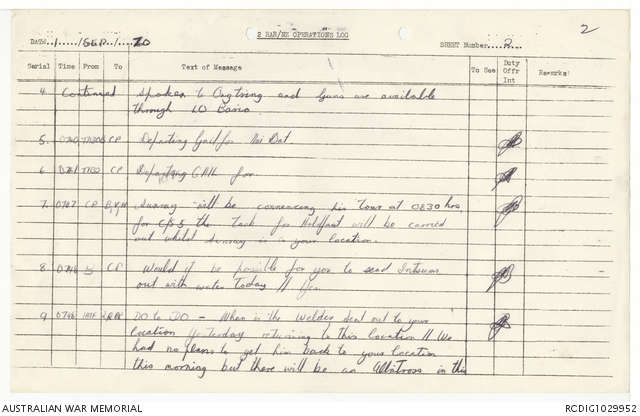 2 RAR/NZ OPERATIONS LOG
2
DATE 1 / SEP / 70 SHEET Number 2
Serial Time From To Text of Message To See Duty Offr Int Remarks
4 Continued Spoken to and Guns are available
through LO Baria.
5. CP Departing for Nui Dat.
6 CP Departing for
7. 0747 CP Sunray will be commencing his Tour at 0830 hrs
for C/S 5 the Task for will be carried
out whilst Sunray is in your location.
8. 0746 5 CP Would it be possible for you to send
out with water Today //
9 0748 DO to DO - When is the Welder sent out to your
location Yesterday returning to this location // We
had no plans to get him back to your location
this morning but there will be an Albatross in this
AUSTRALIAN WAR MEMORIAL RCDIG1029952